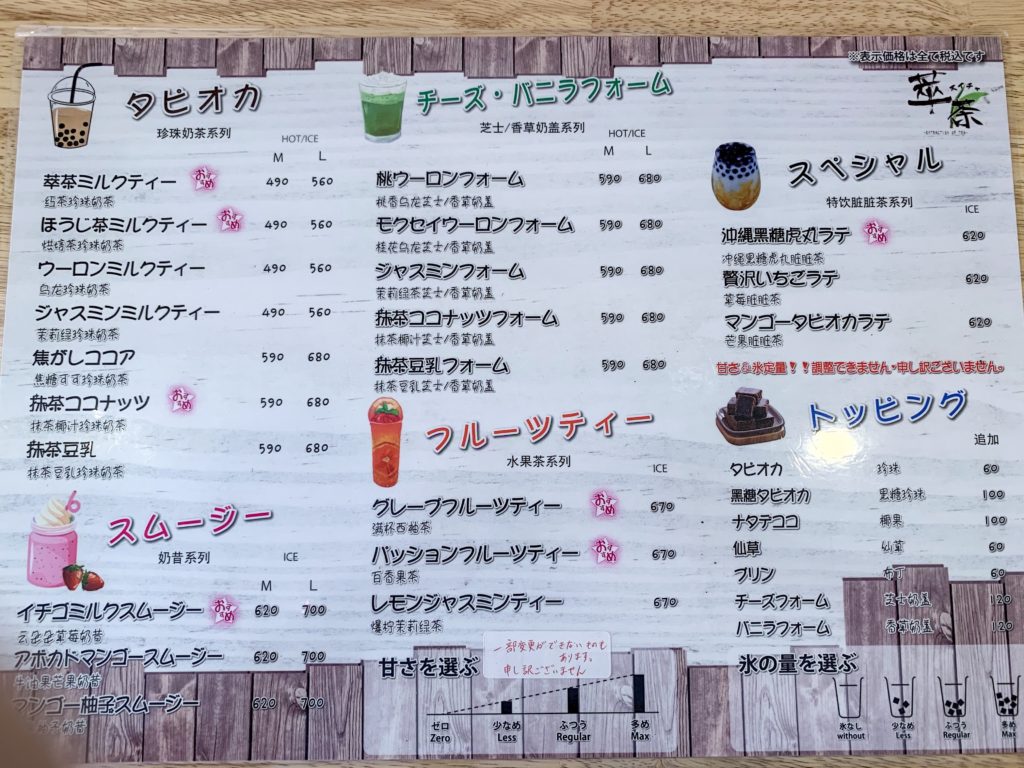 ※表示価格は全て税込です
萃茶
タピオカ
珍珠奶茶系列
HOT/ICE
M L
萃茶ミルクティー おすすめ 490 560
红茶珍珠奶茶
ほうじ茶ミルクティー おすすめ 490 560
烘焙茶珍珠奶茶
ウーロンミルクティー 490 560
乌龙珍珠奶茶
ジャスミンミルクティー 490 560
茉莉绿珍珠奶茶
焦がしココア 590 680
焦糖可可珍珠奶茶
抹茶ココナッツ おすすめ 590 680
抹茶椰汁珍珠奶茶
抹茶豆乳 590 680
抹茶豆乳珍珠奶茶
スムージー
奶昔系列 ICE
M L
イチゴミルクスムージー おすすめ 620 700
云朵朵草莓奶昔
アボカドマンゴースムージー 620 700
牛油果芒果奶昔
マンゴー柚子スムージー 620 700
柚子奶昔
チーズ・バニラフォーム
芝士/香草奶盖系列
HOT/ICE
M L
桃ウーロンフォーム 590 680
桃香乌龙芝士/香草奶盖
モクセイウーロンフォーム 590 680
桂花乌龙芝士/香草奶盖
ジャスミンフォーム 590 680
茉莉绿茶芝士/香草奶盖
抹茶ココナッツフォーム 590 680
抹茶椰汁芝士/香草奶盖
抹茶豆乳フォーム 590 680
抹茶豆乳芝士/香草奶盖
フルーツティー
水果茶系列 ICE
グレープフルーツティー おすすめ 670
满杯西柚茶
パッションフルーツティー おすすめ 670
百香果茶
レモンジャスミンティー 670
爆柠茉莉绿茶
甘さを選ぶ
一部変更ができないものも
あります。
申し訳ございません
ゼロ 少なめ ふつう 多め
Zero Less Regular Max
スペシャル
特饮脏脏茶系列 ICE
沖縄黒糖虎丸ラテ おすすめ 620
冲绳黑糖虎丸脏脏茶
贅沢いちごラテ 620
草莓脏脏茶
マンゴータピオカラテ 620
芒果脏脏茶
甘さ&氷定量！！調整できません・申し訳ございません。
トッピング
追加
タピオカ 珍珠 60
黑糖タピオカ 黑糖珍珠 100
ナタデココ 椰果 100
仙草 仙草 60
プリン 布丁 60
チーズフォーム 芝士奶盖 120
バニラフォーム 香草奶盖 120
氷の量を選ぶ
氷なし 少なめ ふつう 多め
without Less Regular Max